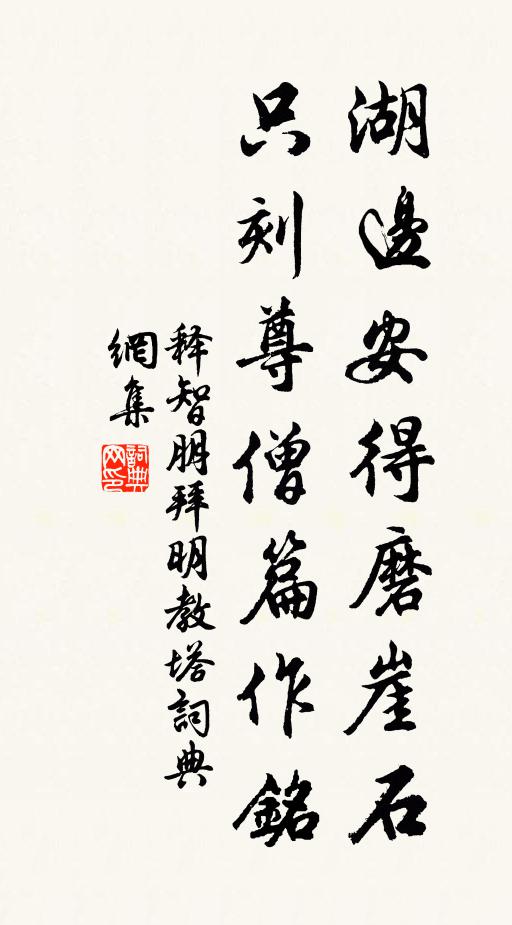 湖邊安得磨崖石
只刻尊僧篇作銘
释智朋拜明教塔詞典
網集
詞典网印